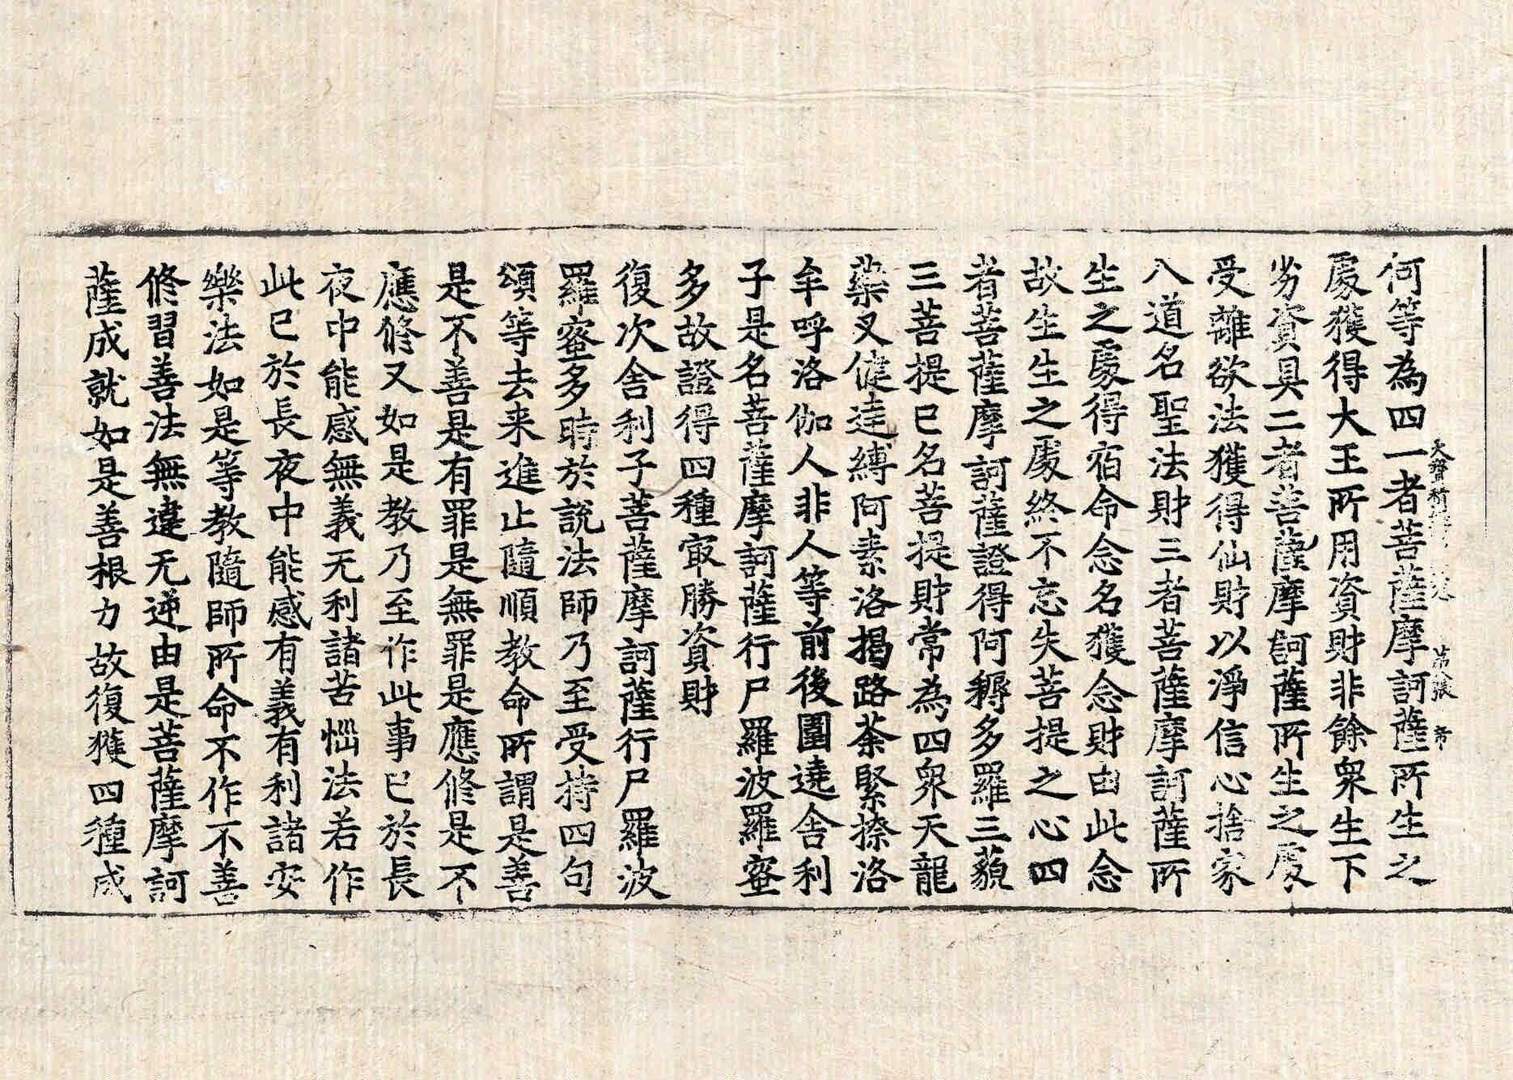 何等為四一者菩薩摩訶薩所生之
處獲得大王所用資財非餘衆生下
劣資具二者菩薩摩訶薩所生之處
受離欲法獲得仙財以淨信心捨家
八道名聖法財三者菩薩摩訶薩所
生之處得宿命念名獲念財由此念
故生生之處終不忘失菩提之心四
者菩薩摩訶薩證得阿耨多羅三藐
三菩提已名菩提財常為四衆天龍
藥叉健達縛阿素洛揭路荼緊捺洛
牟呼洛伽人非人等前後圍遶舍利
子是名菩薩摩訶薩行尸羅波羅蜜
多故證得四種㝡勝資財
復次舍利子菩薩摩訶薩行尸羅波
羅蜜多時於說法師乃至受持四句
頌等去来進止隨順教命所謂是善
是不善是有罪是無罪是應修是不
應修又如是教乃至作此事已於長
夜中能感無義无利諸苦惱法若作
此已於長夜中能感有義有利諸安
樂法如是等教隨師所命不作不善
修習善法無違无逆由是菩薩摩訶
薩成就如是善根力故復獲四種成